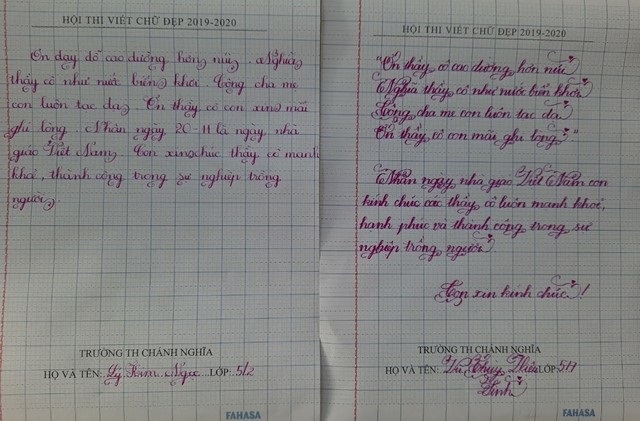 HỘI THI VIẾT CHỮ ĐẸP 2019-2020
Ơn dạy dỗ cao dường hơn núi. Nghĩa
thầy cô như nước biển khơi. Công cha mẹ
con luôn tạc dạ. Ơn thầy cô con xin mãi
ghi lòng. Nhân ngày 20-11 là ngày nhà
giáo Việt Nam. Con xin chúc thầy cô mạnh
khỏe, thành công trong sự nghiệp trồng
người.
TRƯỜNG TH CHÁNH NGHĨA
HỌ VÀ TÊN: Lý Kim Ngọc LỚP: 5/2
FAHASA
HỘI THI VIẾT CHỮ ĐẸP 2019-2020
"Ơn thầy cô cao dường hơn núi
Nghĩa thầy cô như nước biển khơi
Công cha mẹ con luôn tạc dạ
Ơn thầy cô con mãi ghi lòng"
Nhân ngày nhà giáo Việt Nam con
kính chúc các thầy cô luôn mạnh khỏe,
hạnh phúc và thành công trong sự
nghiệp trồng người.
Con xin kính chúc!
TRƯỜNG TH CHÁNH NGHĨA
HỌ VÀ TÊN: Vũ Thụy LỚP: 5/7
Linh
FAHASA